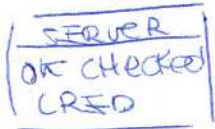 SERVER
OK CHECKED
CRED